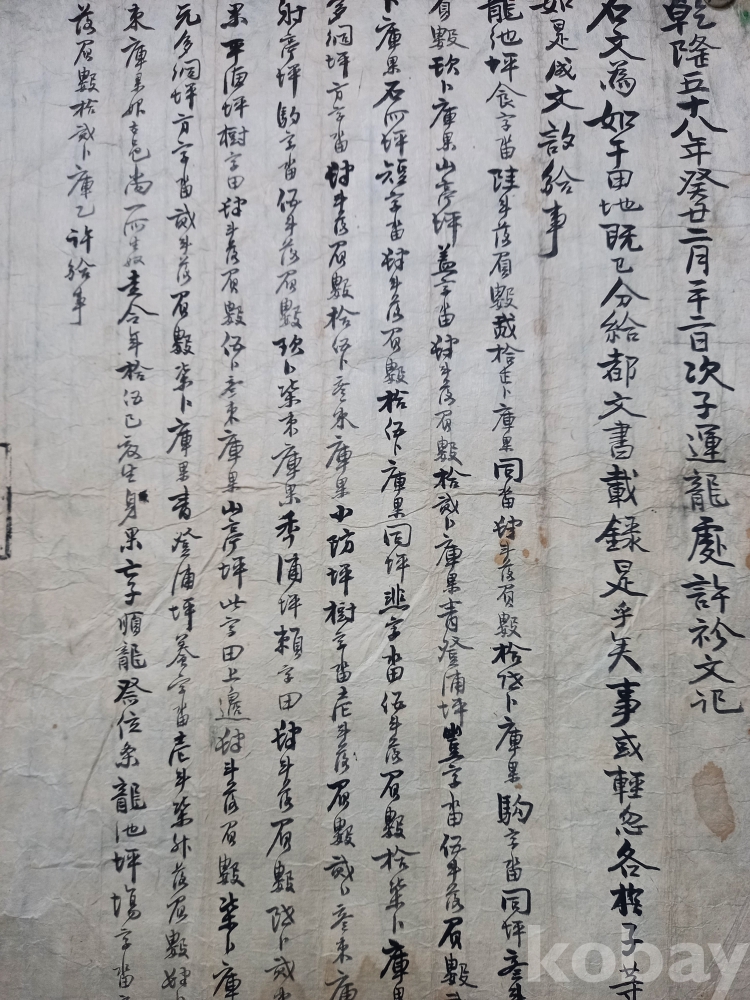 乾隆五十八年癸丑二月二十二日次子運龍處許衿文記
右文為如干田地既已分給都文書載錄是乎矣事或輕忽各衿子等
如是成文許給事
龍池坪食字畓陸斗落負數貳拾卜庫果同畓肆斗落負數拾卜庫果駒字畓同坪參斗
負數玖卜庫果山亭坪盖字畓肆斗落負數拾貳卜庫果青登浦坪豈字畓伍斗落負數
卜庫果石所坪短字畓肆斗落負數拾伍卜庫果同坪悲字畓伍斗落負數拾柒卜庫果
多網坪方字畓肆斗落負數拾伍卜參束庫果小防坪樹字畓壱斗落負數貳卜參束庫
射亭坪駒字畓伍斗落負數玖卜柒束庫果季浦坪賴字田肆斗落負數陸卜貳束
果平海坪樹字田肆斗落負數伍卜參束庫果山亭坪此字田上邊肆斗落負數柒卜庫
元多網坪方字畓貳斗落負數柒卜庫果青登浦坪養字畓壱斗柒升落負數肆
束庫果奴一所生奴年拾伍身果亡子順龍祭位条龍池坪場字畓
落負數拾貳卜庫乙許給事
kobay